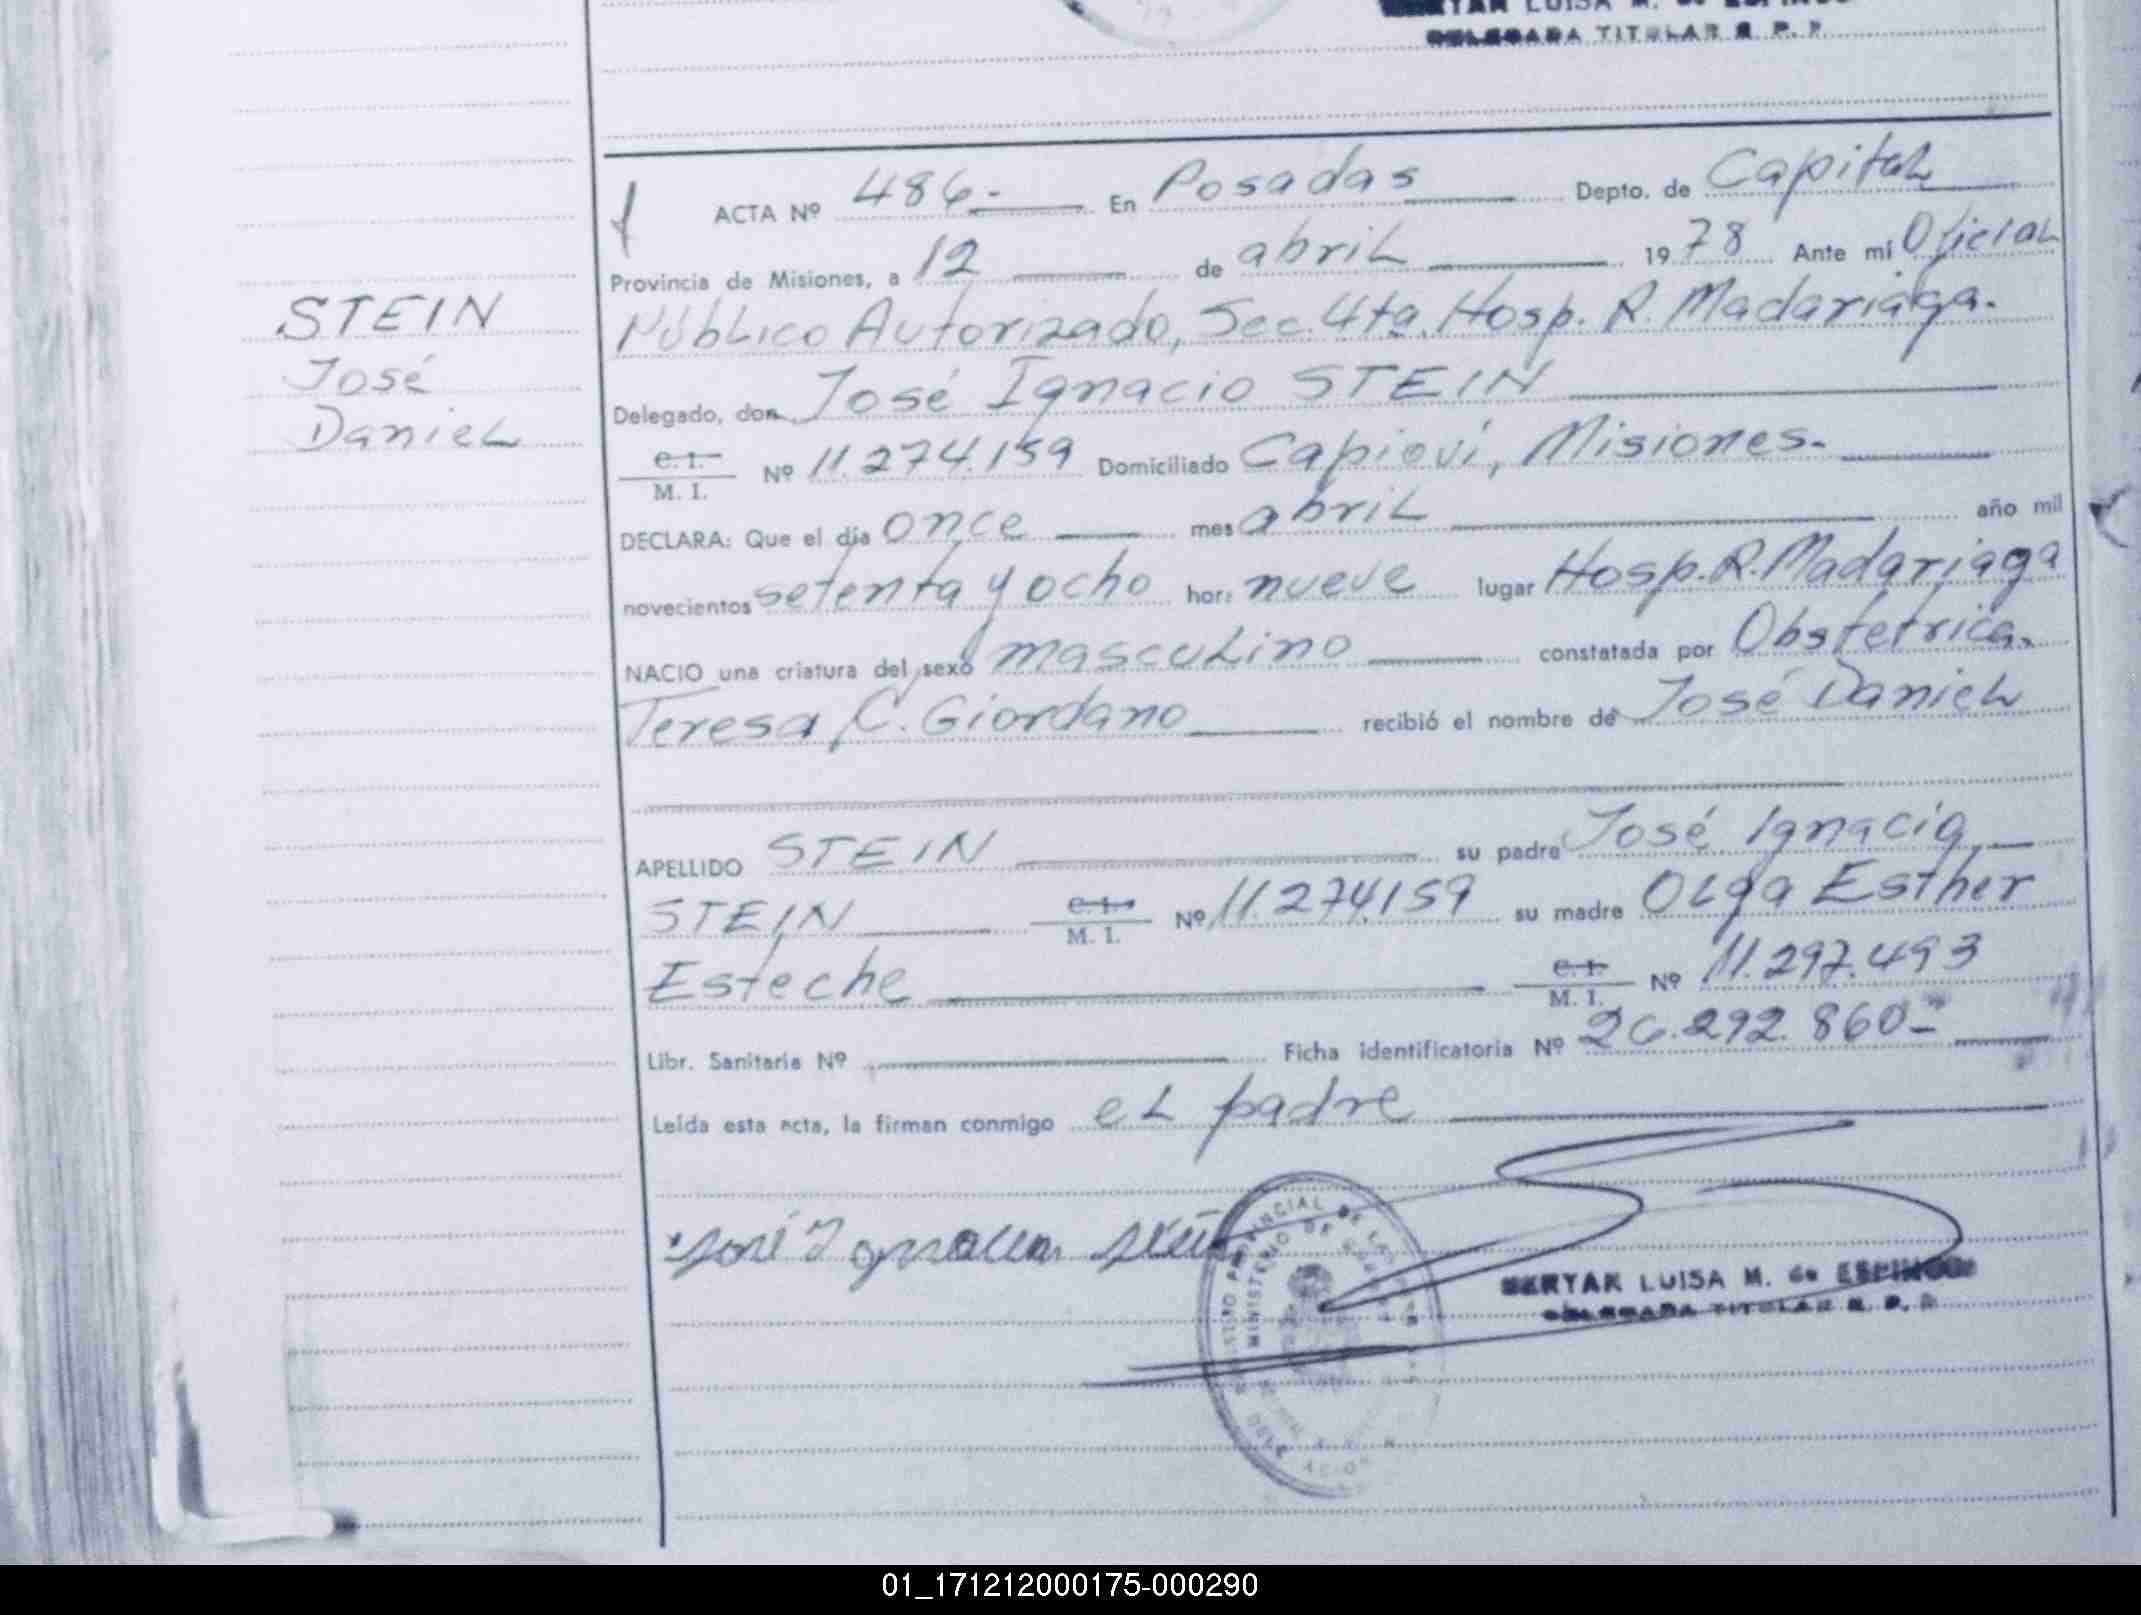 DELEGADA TITULAR R. P. P.
ACTA Nº 486.- En Posadas Depto. de Capital
Provincia de Misiones, a 12 de abril 1978 Ante mí Oficial
Público Autorizado, Sec. 4ta. Hosp. R. Madariaga.
Delegado, don José Ignacio STEIN
STEIN
José
Daniel
C. I.
M. I. Nº 11.274.159 Domiciliado Capioví, Misiones.
DECLARA: Que el día once mes abril año mil
novecientos setenta y ocho hora nueve lugar Hosp. R. Madariaga
NACIO una criatura del sexo masculino constatada por Obstetrica.
Teresa C. Giordano recibió el nombre de José Daniel
APELLIDO STEIN su padre José Ignacio
STEIN C. I. M. I. Nº 11.274.159 su madre Olga Esther
Esteche C. I. M. I. Nº 11.297.493
Libr. Sanitaria Nº Ficha identificatoria Nº 26.292.860-
Leída esta acta, la firman conmigo el padre
José Ignacio Stein
LUISA M. de
DELEGADA TITULAR R. P.
01_171212000175-000290